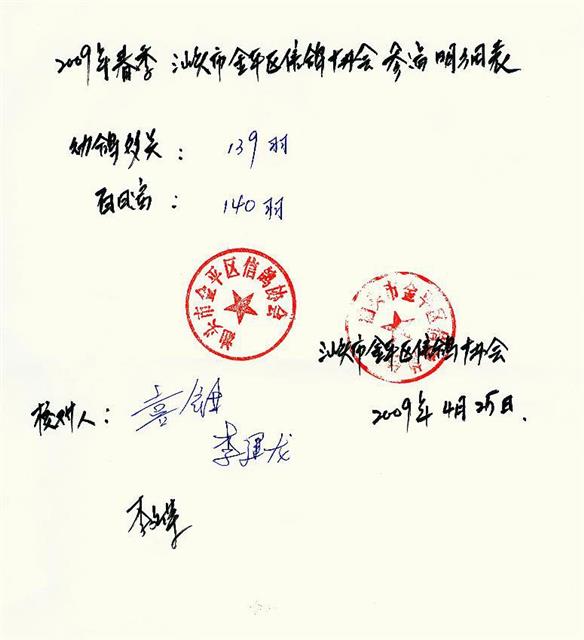 2009年春季 汕头市金平区信鸽协会参赛明细表
幼鸽多关： 139羽
百日赛： 140羽
汕头市金平区信鸽协会
汕头市金平区信鸽协会
汕头市金平区信鸽协会
2009年4月25日.
核对人：
李运龙